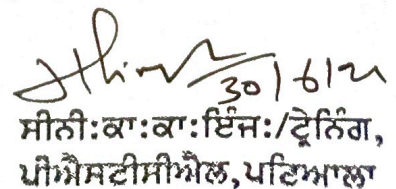 30/6/21
ਸੀਨੀ:ਕਾ:ਕਾ:ਇੰਜ:/ਟ੍ਰੇਨਿੰਗ,
ਪੀਐਸਟੀਸੀਐਲ,ਪਟਿਆਲਾ